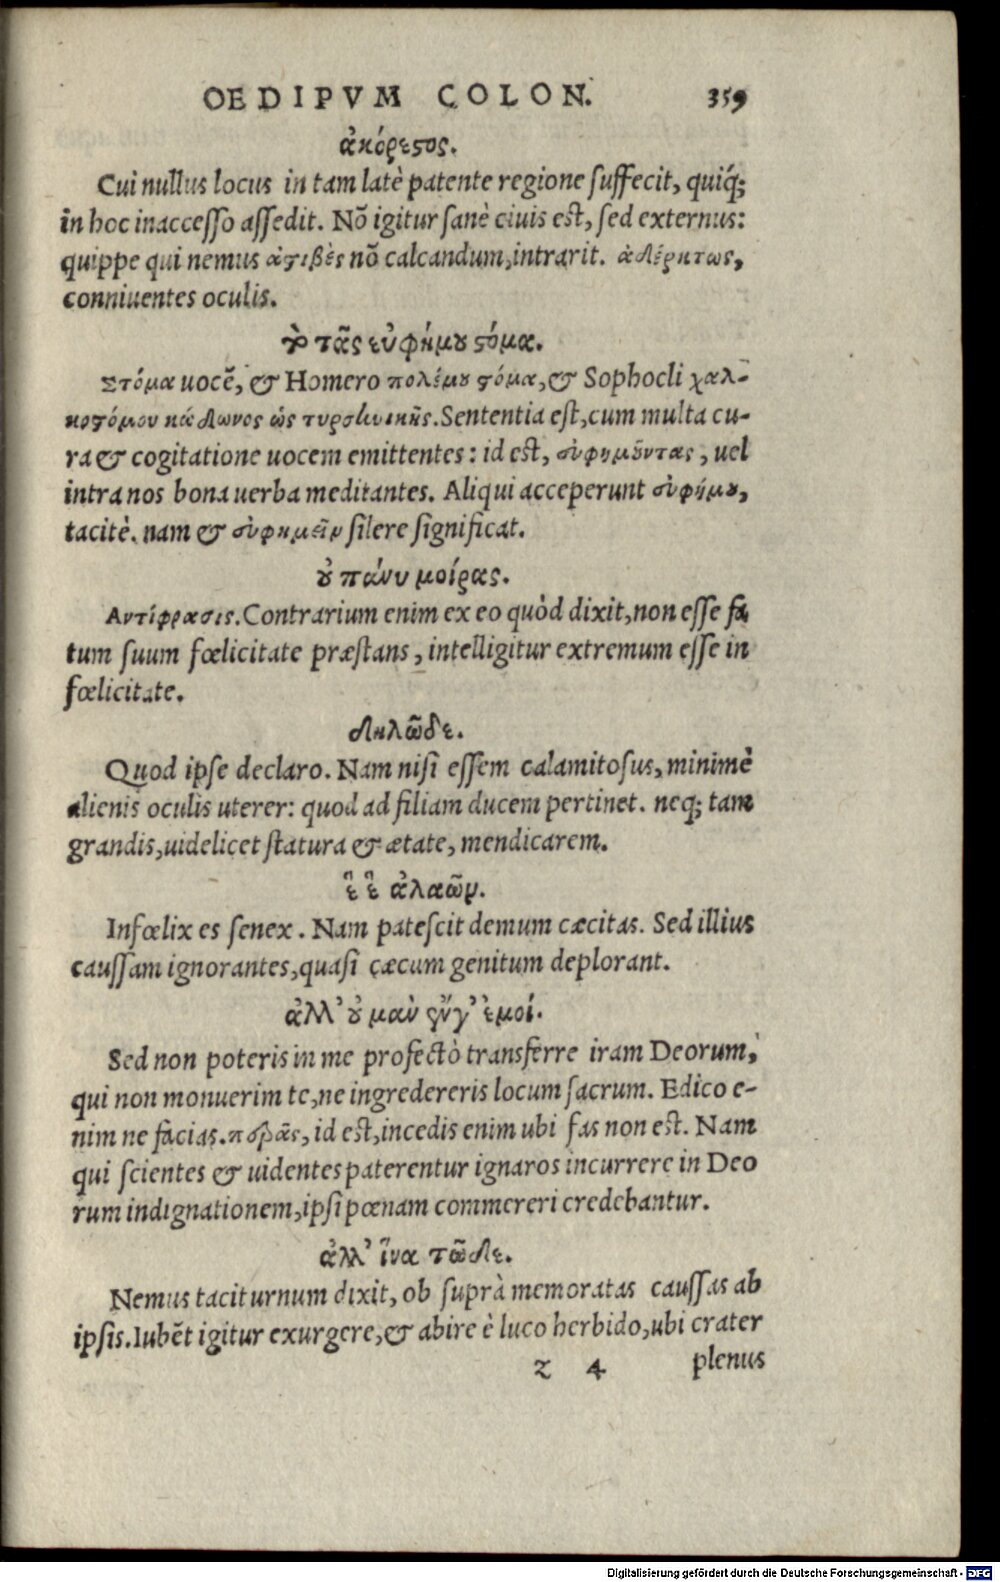 OEDIPVM COLON. 359
ἀκόρεςος.
Cui nullus locus in tam latè patente regione suffecit, quiq́;
in hoc inaccesso assedit. Nõ igitur sanè ciuis est, sed externus:
quippe qui nemus ἀςιβὲς nõ calcandum, intrarit. ἀδέρκτως,
conniuentes oculis.
τὸ τᾶς εὐφήμου ςόμα.
Στόμα uocẽ, & Homero πολέμου ςόμα, & Sophocli χαλ-
κοςόμου κώδωνος ὡς τυρσηνικῆς. Sententia est, cum multa cu-
ra & cogitatione uocem emittentes: id est, εὐφημοῦντας, uel
intra nos bona uerba meditantes. Aliqui acceperunt εὐφήμου,
tacitè. nam & εὐφημεῖν silere significat.
οὐ πάνυ μοίρας.
Αντίφρασις. Contrarium enim ex eo quòd dixit, non esse fa
tum suum fœlicitate præstans, intelligitur extremum esse in
fœlicitate.
δηλῶδε.
Quod ipse declaro. Nam nisi essem calamitosus, minimè
alienis oculis uterer: quod ad filiam ducem pertinet. neq; tam
grandis, uidelicet statura & ætate, mendicarem.
ἒ ἒ ἀλαῶν.
Infœlix es senex. Nam patescit demum cæcitas. Sed illius
caussam ignorantes, quasi cæcum genitum deplorant.
ἀλλ' οὐ μὰν ἔν γ' ἐμοί.
Sed non poteris in me profectò transferre iram Deorum,
qui non monuerim te, ne ingredereris locum sacrum. Edico e-
nim ne facias. περᾶς, id est, incedis enim ubi fas non est. Nam
qui scientes & uidentes paterentur ignaros incurrere in Deo
rum indignationem, ipsi pœnam commereri credebantur.
ἀλλ' ἵνα τῶδε.
Nemus taciturnum dixit, ob suprà memoratas caussas ab
ipsis. Iubẽt igitur exurgere, & abire è luco herbido, ubi crater
z 4 plenus
Digitalisierung gefördert durch die Deutsche Forschungsgemeinschaft - DFG